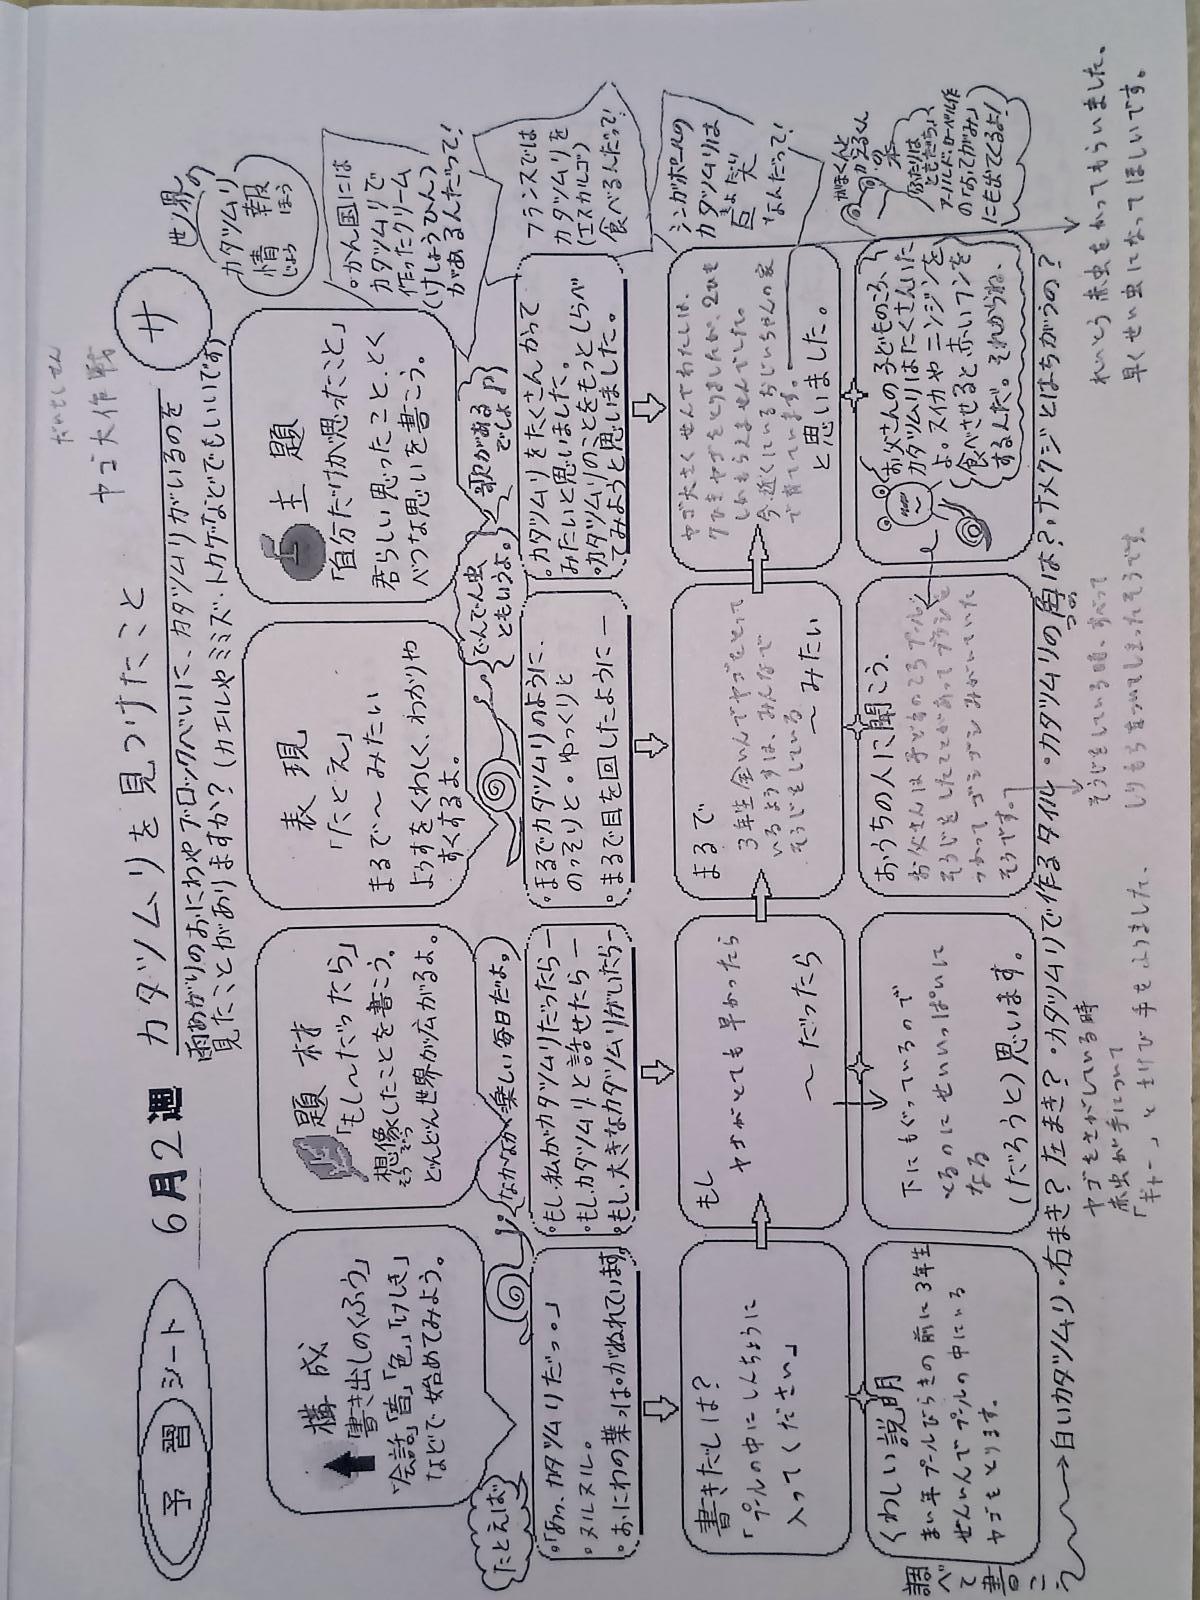 予習シート
6月2週
カタツムリを見つけたこと
サ
ヤゴ大作戦
だいさくせん
雨あがりのおにわやブロックべいに、カタツムリがいるのを
見たことがありますか?(カエルやミミズ・トカゲなどでもいいです)
世界の
カタツムリ
情報
じょうほう
構成
書き出しのくふう
「会話」「音」「色」「けしき」
などで始めてみよう。
題材
「もし〜だったら」
想像したことを書こう。
そうぞう
どんどん世界が広がるよ。
表現
「たとえ」
まるで〜みたい
ようすをくわしく、わかりや
すくするよ。
主題
「自分だけが思ったこと」
君らしい思ったこと、とく
べつな思いを書こう。
かん国には
カタツムリで
作ったクリーム
(けしょうひん)
があるんだって!
フランスでは
カタツムリを
(エスカルゴ)
食べるんだって!
シンガポールの
カタツムリは
巨大
きょだい
なんだって!
がまくんと
かえるくん
の本
「ふたりは
ともだち」
アーノルド・ローベル作
の「おてがみ」
にも出てくるよ!
たとえば
なかなか楽しい毎日だよ。
でんでん虫
ともいうよ。
歌がある
でしょ♪
「あっ、カタツムリだっ。」
・ヌルヌル。
・おにわの葉っぱがぬれています。
・もし、私がカタツムリだったら—
・もし、カタツムリと話せたら—
・もし、大きなカタツムリがいたら—
・まるでカタツムリのように、
のっそりと・ゆっくりと
・まるで目を回したように—
・カタツムリをたくさん、かって
みたいと思いました。
・カタツムリのことをもっとしらべ
てみようと思いました。
書きだしは?
「プールの中にしんちょうに
入ってください」
もし
ヤゴがとても早かったら
〜だったら
まるで
3年生全いんでヤゴをとって
いるようすは、みんなで
そうじをしている
〜みたい
ヤゴ大さくせんでわたしは、
7ひきヤゴをとりましたが、2ひき
しかもらえませんでした。
今、近くにいるおじいちゃんの家
で育てています。
と思いました。
くわしい説明
まい年プールびらきの前に3年生
ぜんいんでプールの中にいる
ヤゴをとります。
下にもぐっているので
とるのにせいいっぱいに
なる
(だろうと)思います。
おうちの人に聞こう。
お父さんは子どものころプール
そうじをしたことがあってブラシを
つかってゴシゴシみがいていた
そうです。
お父さんの子どものころ、
カタツムリはたくさんいた
よ。スイカやニンジンを
食べさせると、赤いフンを
するんだ。それからね、
調べて書こう
→白いカタツムリ・右まき?左まき?・カタツムリで作るタイル・カタツムリの角は?・ナメクジとはちがうの?
つの
ヤゴをさがしている時
赤虫が手について
「ギャー」とさけび手をふりました。
そうじをしている時、すべって
しりもちをついてしまったそうです。
れいとう赤虫をかってもらいました。
早くせい虫になってほしいです。